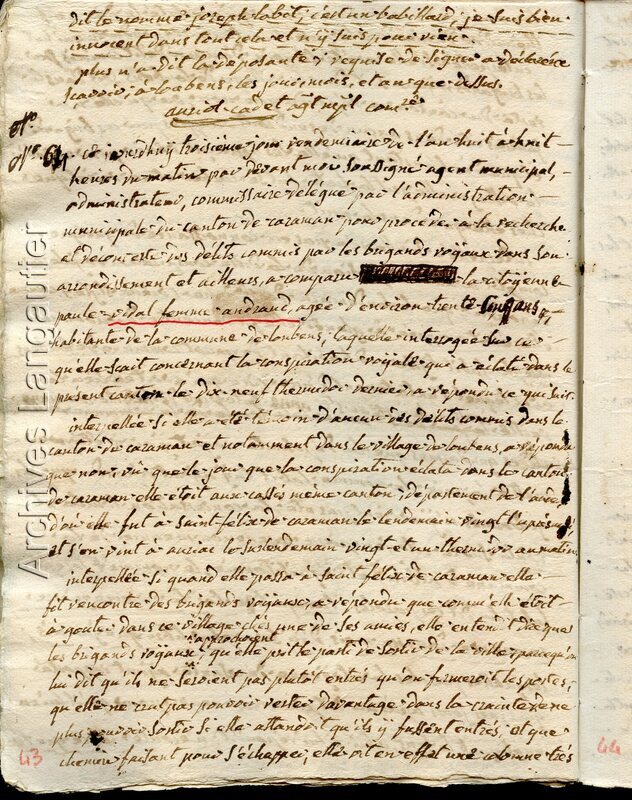 dit le nommé joseph labat, c'est un babillard, je suis bien
innocent dans tout cela et n'y suis pour rien
plus n'a dit la déposante, requise de signer a déclaré ne
scavoir, à loubens, les jour, mois, et an que dessus.
auriol cadet agt mpl comre
No.
No. 64. ce jourdhuy troisième jour vendemiaire de l'an huit à huit
heures du matin par devant moi soussigné agent municipal,
administrateur, commissaire délégué par l'administration
municipale du canton de caraman pour procéder à la recherche
et découverte des délits commis par les brigands royaux dans son
arrondissement et ailleurs, a comparu la citoyenne
paule vidal femme andraud, agée d'environ trente cinq ans
habitante de la commune de loubens, laquelle interrogée sur ce
qu'elle scait concernant la conspiration royale qui a éclaté dans le
présent canton le dix neuf thermidor dernier, a répondu ce qui suit
interpellée si elle a été témoin d'aucun des délits commis dans le
canton de caraman et notamment dans le village de loubens, a répondu
que non, vû que le jour que la conspiration éclata dans le canton
de caraman elle étoit aux casses même canton, département de l'aude
d'ou elle fut à saint félix de caraman le lendemain vingt l'après midi
et s'en vint à auriac le surlendemain vingt et un thermidor au matin
interpellée si quand elle passa à saint félix de caraman elle
fit rencontre des brigands royaux, a répondu que comm'elle étoit
à gouté dans ce village chés une de ses amies, elle entendit dire que
les brigands royaux approchoient qu'elle prit le parti de sortir de la ville parcequ'on
lui dit qu'ils ne seroient pas plutôt entrés qu'on fermeroit les portes,
qu'elle ne crut pas pouvoir rester davantage dans la crainte de ne
plus pouvoir sortir si elle attandoit qu'ils y fussent entrés, et que
chemin faisant pour s'échapper, elle vit en effet une colonne très
43
44
Archives Langautier